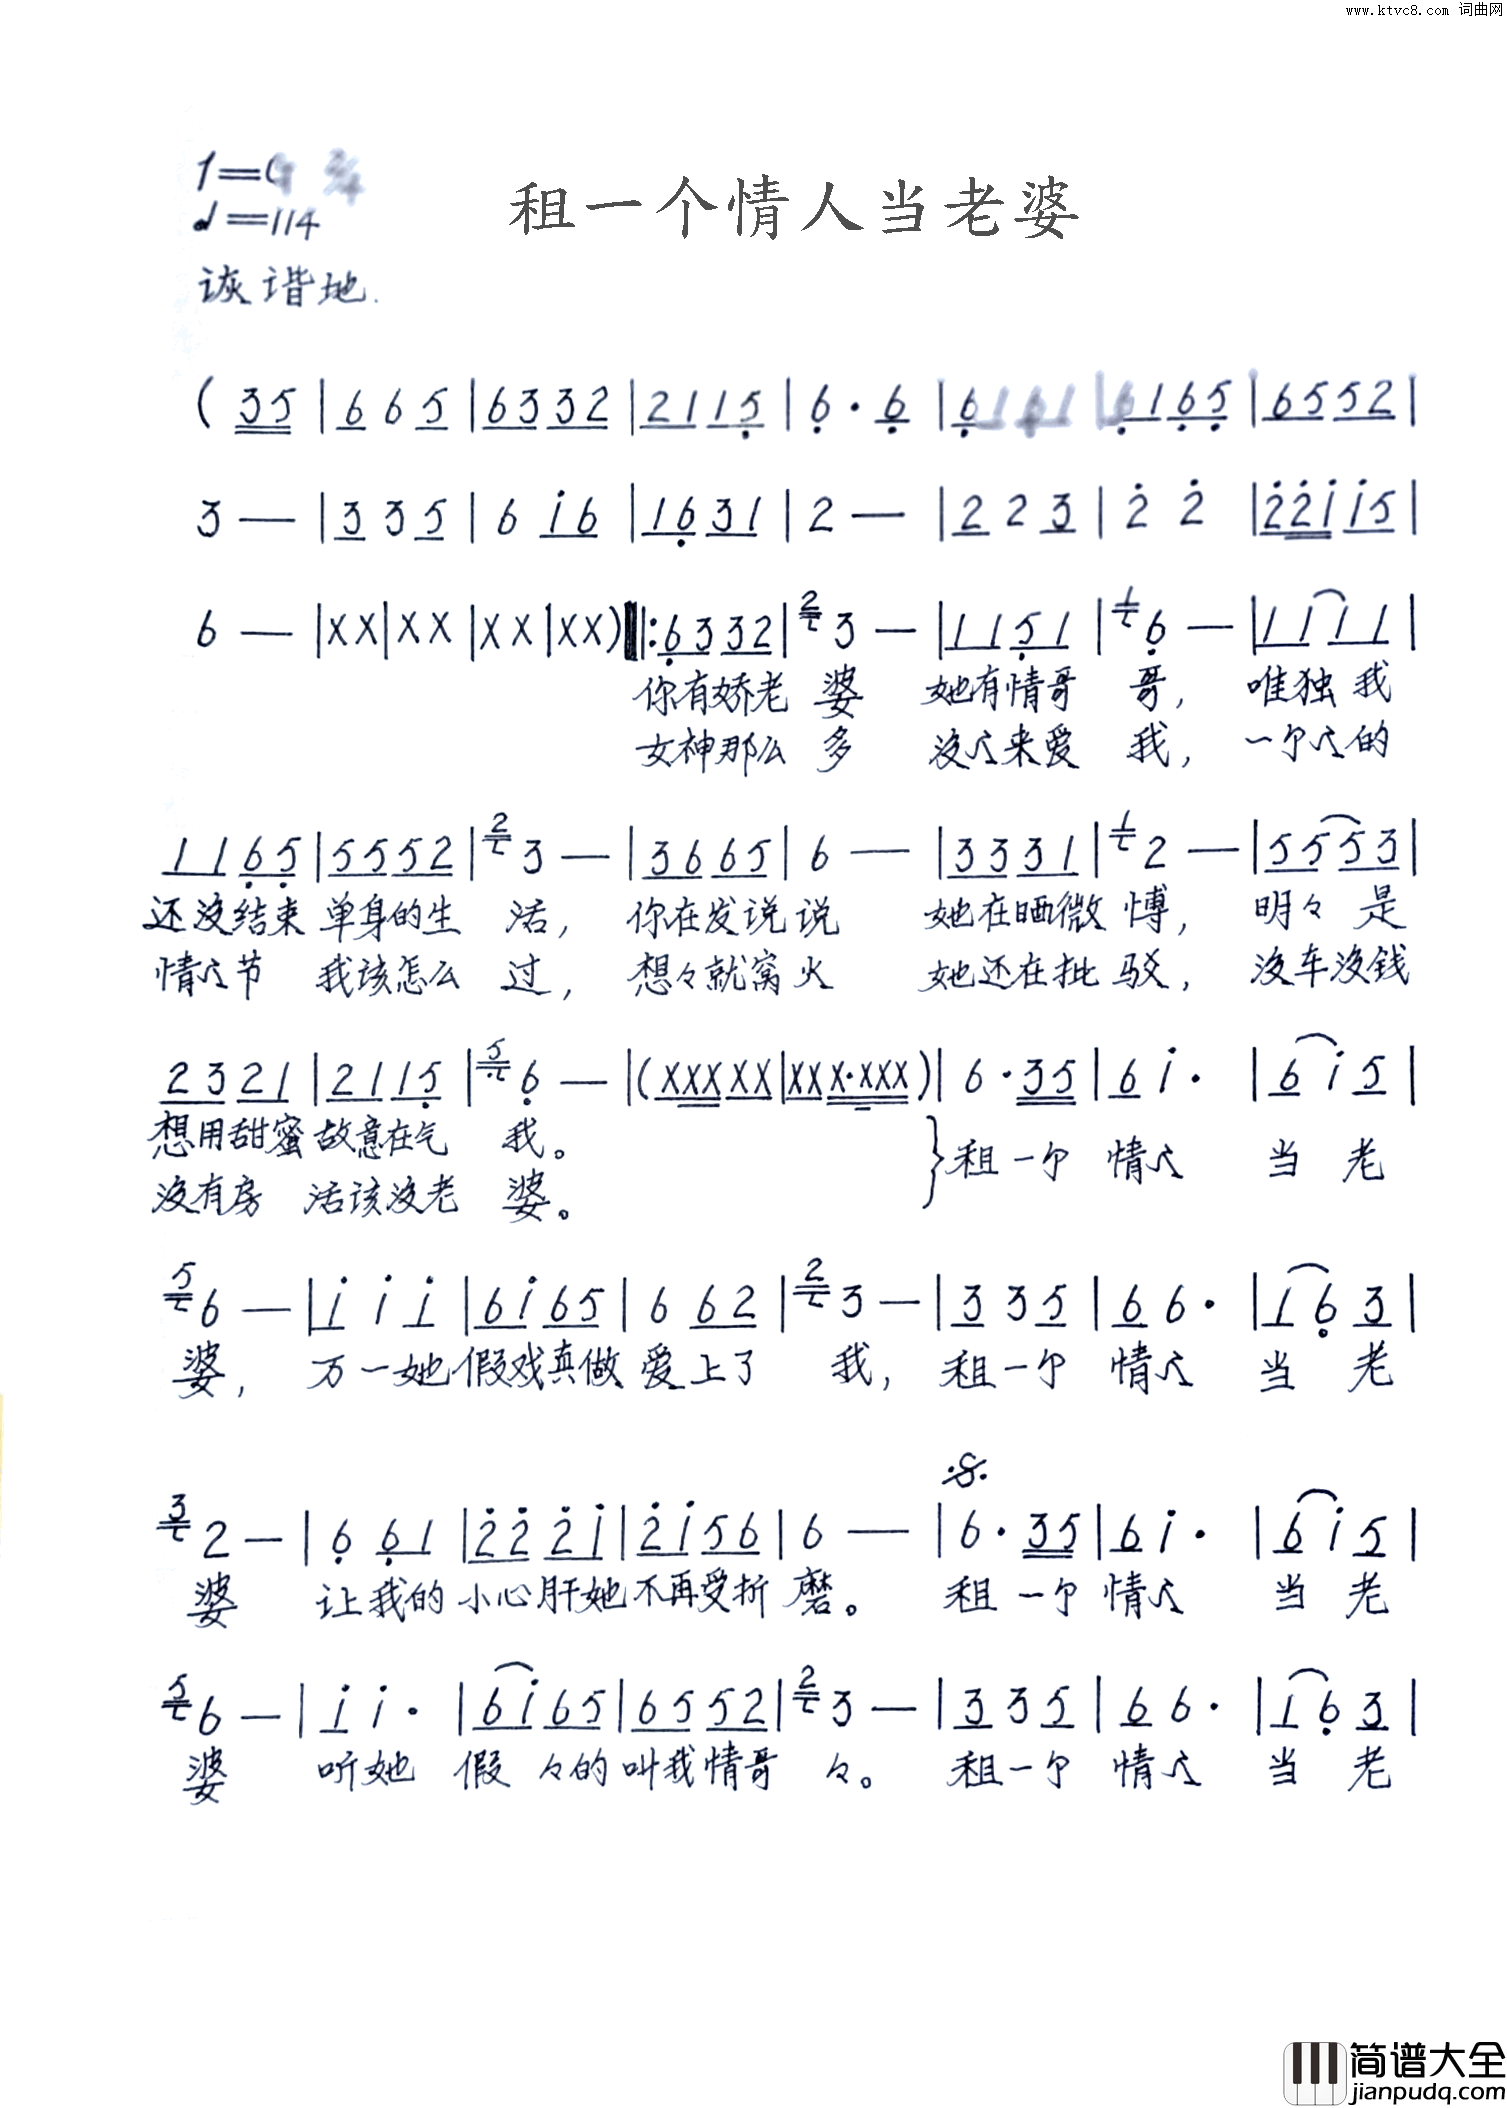 www.ktvc8.com 词曲网
1=
♩=114
租一个情人当老婆
诙谐地.
( 35 | 6 6 5 | 6332 | 2115 | 6 · 6 | 6 | 6165 | 6552 |
3 — | 3 3 5 | 6 i6 | 1631 | 2 — | 2 2 3 | 2̇ 2̇ | 2̇2̇i i5 |
6 — | XX | XX | XX | XX ) ‖: 6332 | 2 3 — | 1151 | 1 6 — | 1111 |
你有娇老 婆 她有情哥 哥, 唯独我
女神那么 多 没人来爱 我, 一个人的
1165 | 5552 | 2 3 — | 3665 | 6 — | 3331 | 1 2 — | 5553 |
还没结束 单身的生 活, 你在发说说 她在晒微 博, 明々 是
情人节 我该怎么 过, 想々就窝火 她还在批 驳, 没车没钱
2321 | 2115 | 5 6 — | ( XXXXX | XXX·XXX ) | 6 · 35 | 6 i · | 6 i 5 |
想用甜蜜 故意在气 我。 } 租一个 情人 当 老
没有房 活该没老 婆。
5 6 — | i i i | 6i65 | 6 62 | 2 3 — | 3 3 5 | 6 6 · | 1 6 3 |
婆, 万一她 假戏真做 爱上了 我, 租一个 情人 当 老
3 2 — | 6 61 | 2̇2̇2̇i | 2̇i56 | 6 — | 6 · 35 | 6 i · | 6 i 5 |
婆 让我的 小心肝她 不再受折 磨。 租一个 情人 当 老
5 6 — | i i · | 6i65 | 6552 | 2 3 — | 3 3 5 | 6 6 · | 1 6 3 |
婆 听她 假 々的 叫我情哥 々。 租一个 情人 当 老
简谱大全
jianpudq.com